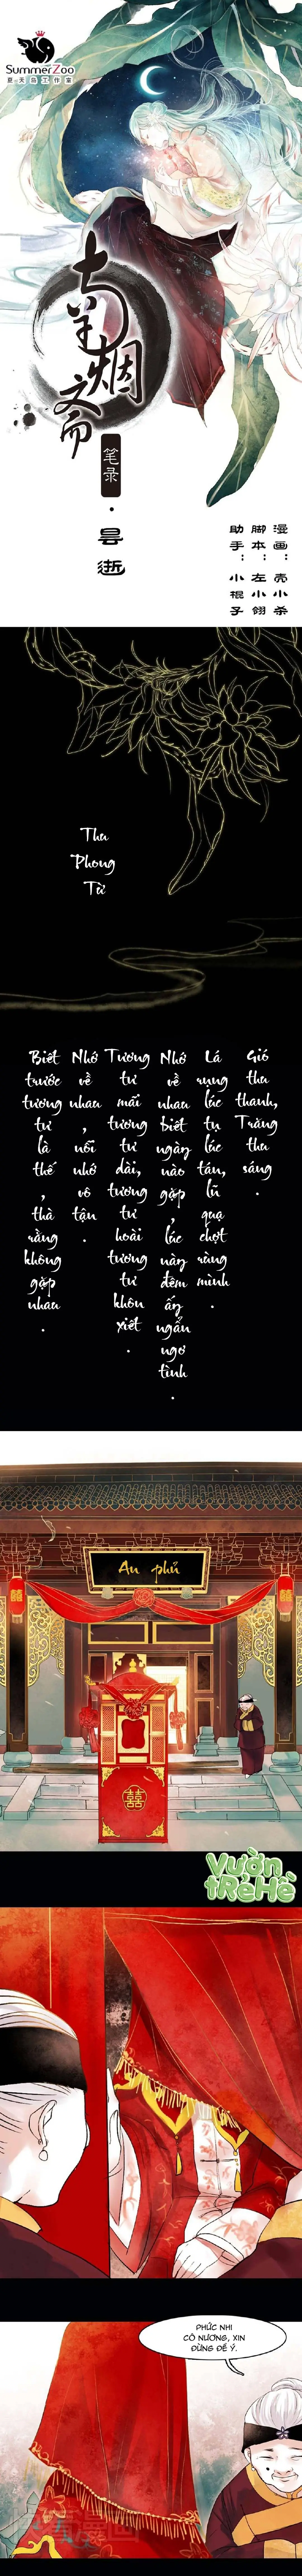 SummerZoo
夏天岛工作室
南烟斋
笔录
·昙逝
漫画：壳小杀
脚本：左小翎
助手：小棍子
Thu
Phong
Từ
Gió thu thanh, Trăng thu sáng.
Lá rụng lúc tụ lúc tán, lũ quạ chợt rùng mình.
Nhớ về nhau biết ngày nào gặp, lúc này đêm ấy ngẩn ngơ tình.
Tương tư mãi tương tư dài, tương tư hoài tương tư khôn xiết.
Nhớ về nhau, nỗi nhớ vô tận.
Biết trước tương tư là thế, thà rằng không gặp nhau.
An phủ
囍
囍
囍
Vườn
tRẻ Hè
PHỨC NHI
CÔ NƯƠNG, XIN
ĐỪNG ĐỂ Ý.